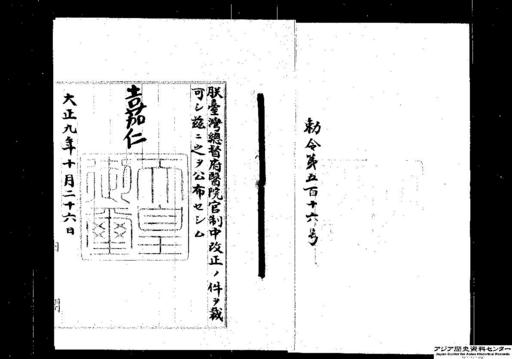 勅令第五百十六号
朕臺灣總督府醫院官制中改正ノ件ヲ裁
可シ茲ニ之ヲ公布セシム
嘉仁
天皇御璽
大正九年十月二十六日
アジア歴史資料センター
Japan Center for Asian Historical Records